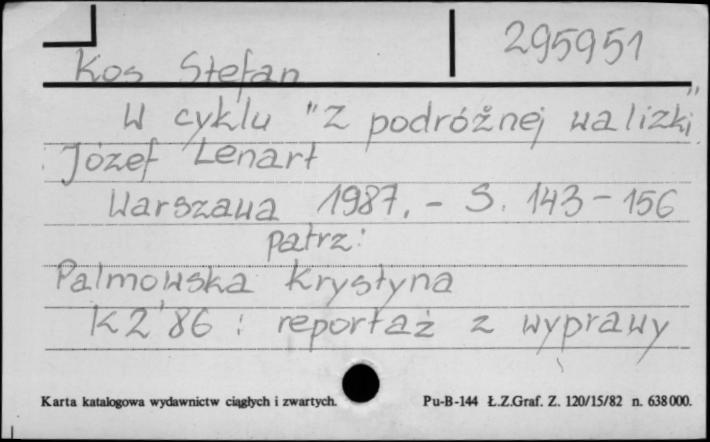 295951
Kos Stefan
W cyklu "Z podróżnej walizki"
Józef Lenart
Warszawa 1987. - S. 143-156
patrz:
Palmowska Krystyna
K2'86 : reportaż z wyprawy
Karta katalogowa wydawnictw ciągłych i zwartych. Pu-B-144 Ł.Z.Graf. Z. 120/15/82 n. 638000.